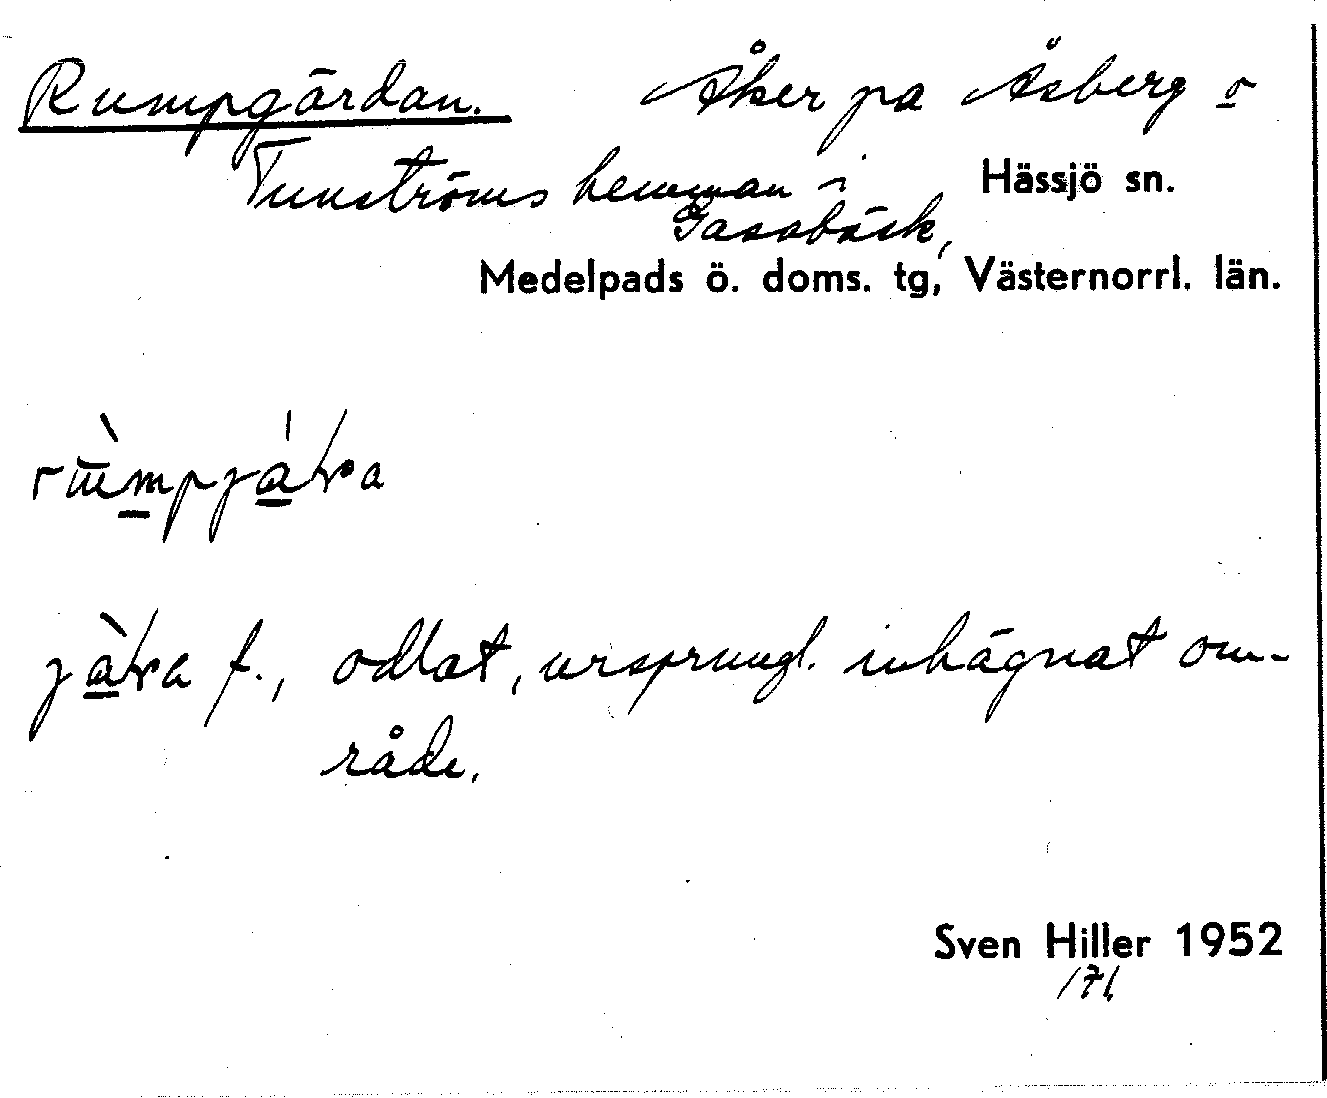 Rumpgärdan. Åker på Åsberg o
Tunströms hemman i Hässjö sn.
Gassbäck,
Medelpads ö. doms. tg, Västernorrl. län.
f., odlat, ursprungl. inhägnat om-
råde.
Sven Hiller 1952
171